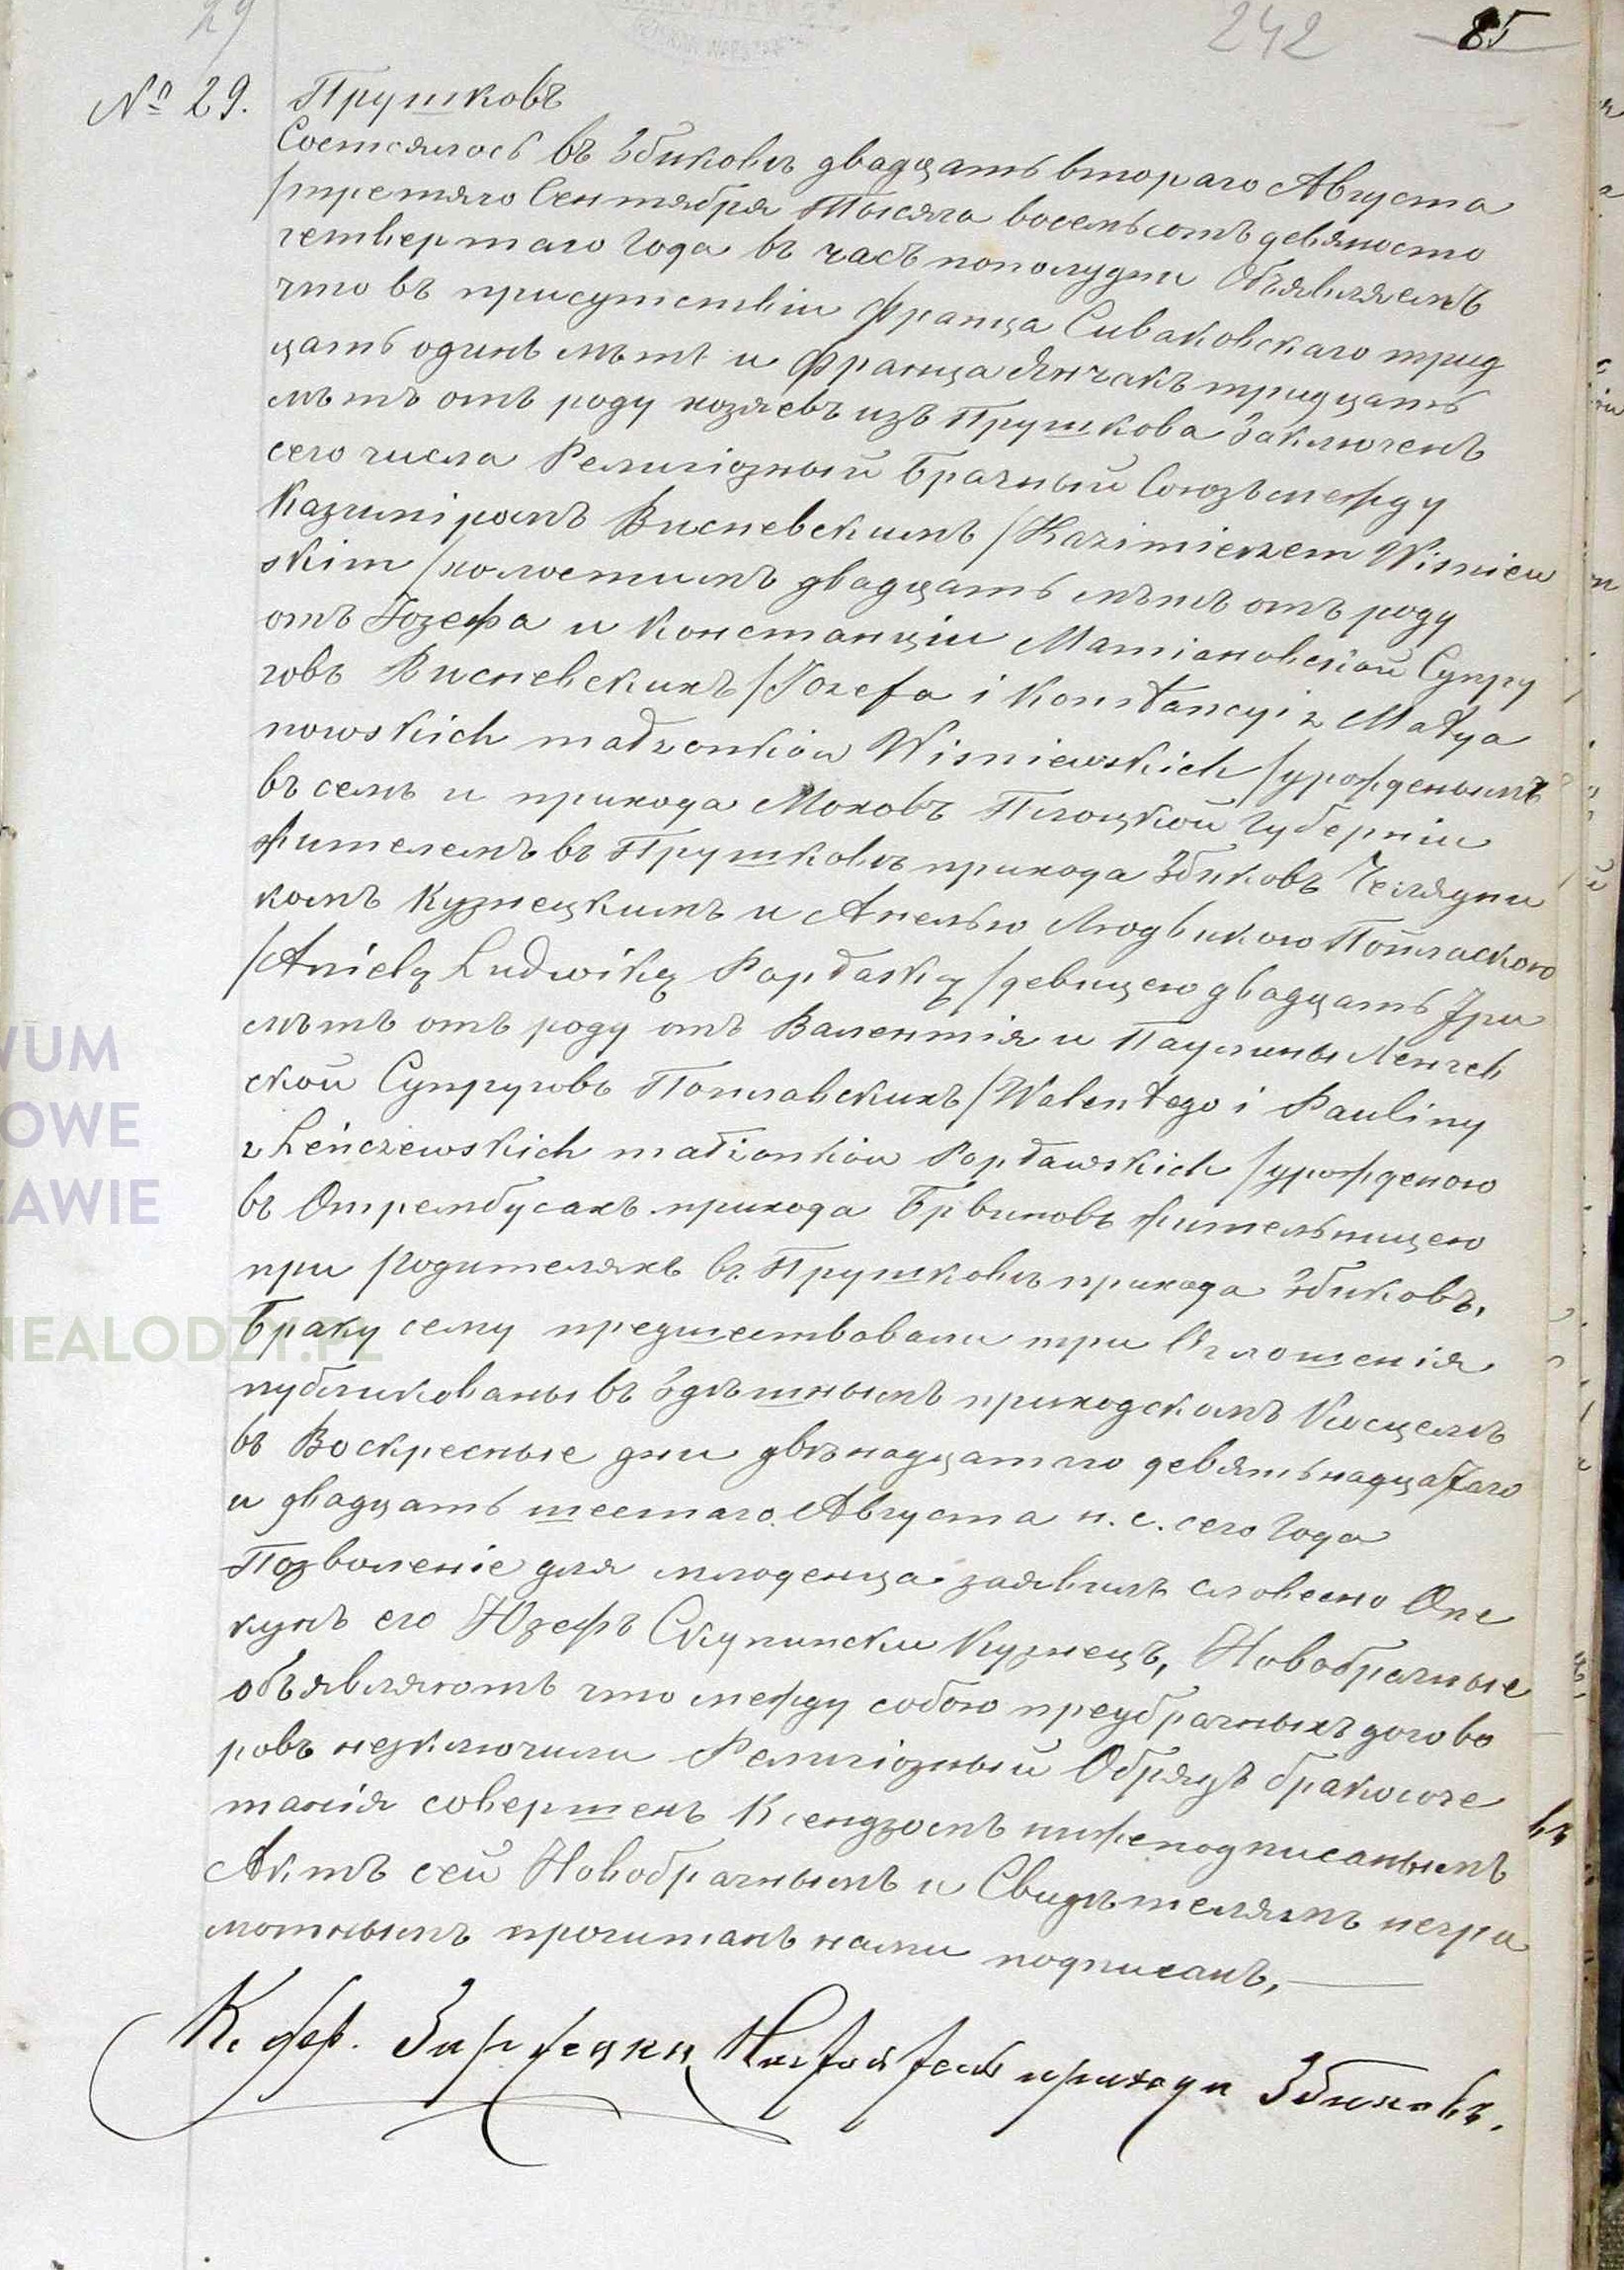 29
242
85
№ 29. Прушковъ
Состоялось въ Збиковѣ двадцать втораго Августа
/третяго Сентября Тысяча восемьсотъ девяносто
четвертаго Года въ часъ пополудни Объявляемъ
что въ присутствіи Франца Сиваковскаго трид
цать одинъ лѣтъ и Франца Янчакъ тридцать
лѣтъ отъ роду хозяевъ изъ Прушкова Заключенъ
сего числа Религіозный Брачный Союзъ между
Казиміромъ Висневскимъ /Kazimierzem Wisniew
skim/ холостымъ двадцать лѣтъ отъ роду
отъ Іозефа и Констанціи Матіановской Супру
говъ Висневскихъ /Józefa i Konstancyi z Matya
nowskich małżonków Wisniewskich/ урожденымъ
въ семъ и прихода Моховъ Плоцкой Губерніи
жителемъ въ Прушковѣ прихода Збиковъ Челядни
комъ Кузнецкимъ и Анелью Людвикою Поплаского
/Anielą Ludwiką Popłaską/ девицею двадцать три
лѣтъ отъ роду отъ Валентія и Паулины Ленчев
ской Супруговъ Поплавскихъ /Walentego i Pauliny
z Leńczewskich małżonków Popławskich/ урожденою
въ Отрембусахъ прихода Брвиновъ жительницею
при Родителяхъ въ Прушковѣ прихода Збиковъ,
Браку сему предшествовали три Оглошенія
публикованы въ Здѣшнымъ приходскомъ Косцелѣ
въ Воскресные дни двѣнадцатаго девятьнадцатаго
и двадцать шестаго Августа н. с. сего Года
Позволеніе для млоденца заявилъ словесно Опе
кунъ его Юзефъ Скупински Кузнецъ, Новобрачные
объявляютъ что между собою предбрачныхъ догово
ровъ незключили Религіозный Обрядъ бракосоче
танія совершенъ Ксендзомъ нижеподписанымъ
Актъ сей Новобрачнымъ и Свидѣтелямъ негра
мотнымъ прочитанъ нами подписанъ,
К. Настоятель прихода Збиковъ.
въ
WUM
OWE
ZAWIE
NEALODZY.PL